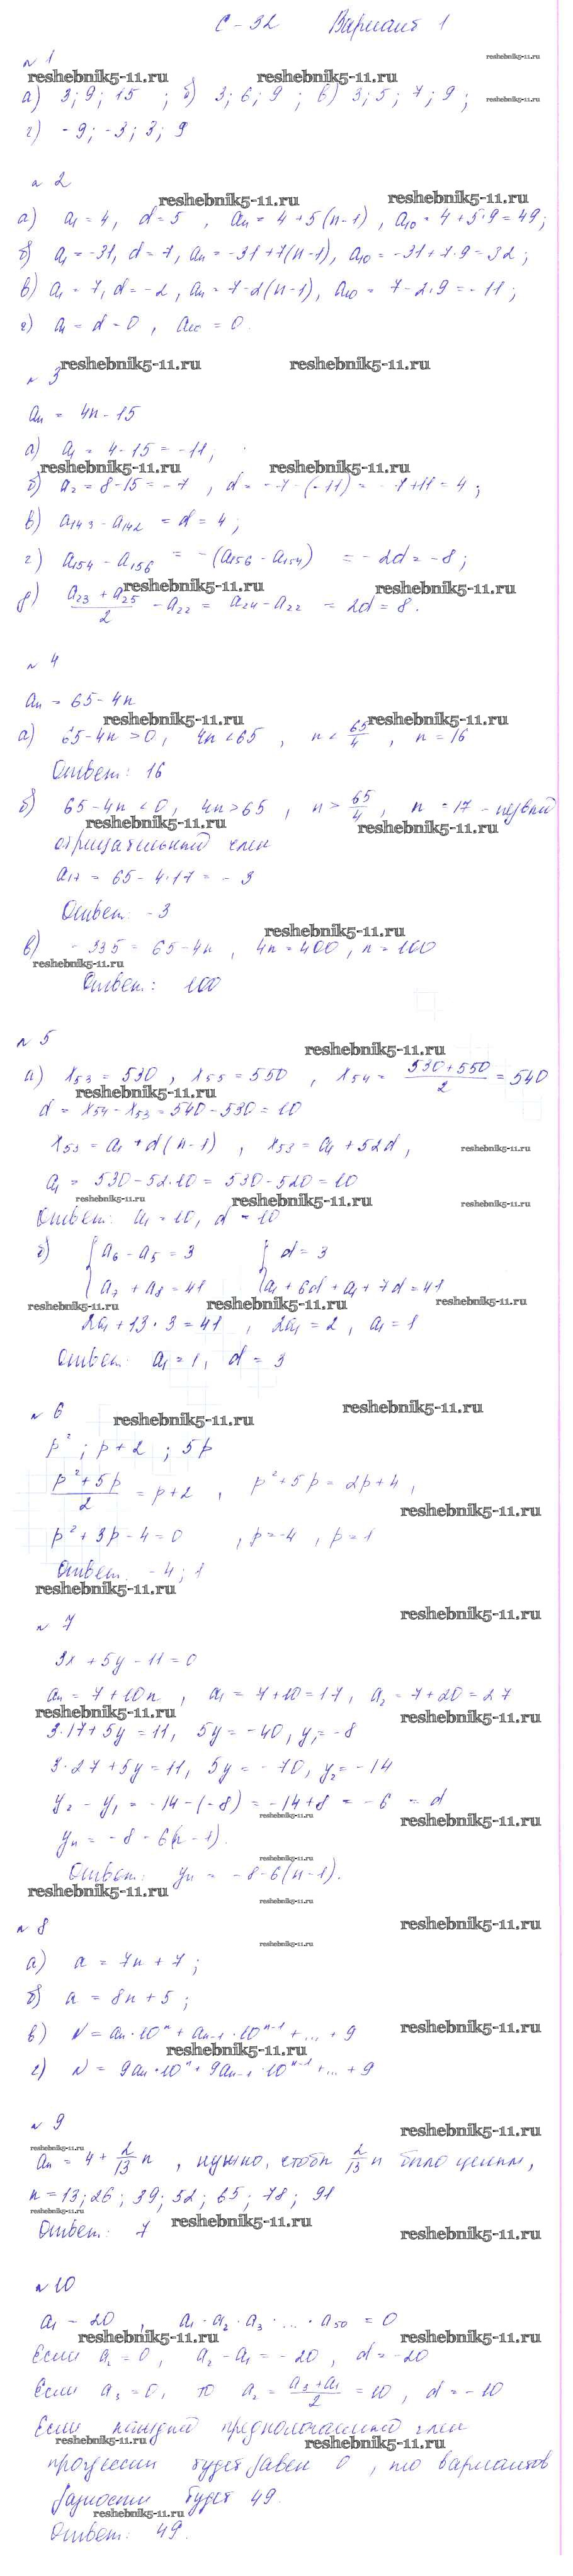 С-32 Вариант 1
№ 1
reshebnik5-11.ru
reshebnik5-11.ru reshebnik5-11.ru
а) 3; 9; 15 ; б) 3; 6; 9 ; в) 3; 5; 7; 9;
reshebnik5-11.ru
г) -9; -3; 3; 9
№ 2
reshebnik5-11.ru reshebnik5-11.ru
а) a₁ = 4, d = 5 , aₙ = 4 + 5(n-1) , a₁₀ = 4 + 5·9 = 49;
б) a₁ = -31, d = 7, aₙ = -31+7(n-1), a₁₀ = -31+7·9 = 32;
в) a₁ = 7, d = -2 , aₙ = 7-2(n-1), a₁₀ = 7-2·9 = -11;
г) a₁ = d = 0 , a₁₀ = 0.
reshebnik5-11.ru reshebnik5-11.ru
№ 3
aₙ = 4n-15
а) a₁ = 4-15 = -11;
reshebnik5-11.ru reshebnik5-11.ru
б) a₂ = 8-15 = -7 , d = -7-(-11) = -7+11 = 4;
в) a₁₄₃ - a₁₄₂ = d = 4;
г) a₁₅₄ - a₁₅₆ = -(a₁₅₆ - a₁₅₄) = -2d = -8;
reshebnik5-11.ru reshebnik5-11.ru
д) (a₂₃ + a₂₅)/2 - a₂₂ = a₂₄ - a₂₂ = 2d = 8.
№ 4
aₙ = 65-4n
reshebnik5-11.ru reshebnik5-11.ru
а) 65-4n > 0, 4n < 65 , n < 65/4 , n = 16
Ответ: 16
б) 65-4n < 0, 4n > 65 , n > 65/4, n = 17 - первый
reshebnik5-11.ru reshebnik5-11.ru
отрицательный член
a₁₇ = 65-4·17 = -3
Ответ: -3
reshebnik5-11.ru
в) -335 = 65-4n , 4n = 400 , n = 100
reshebnik5-11.ru
Ответ: 100
№ 5
reshebnik5-11.ru
а) x₅₃ = 530 , x₅₅ = 550 , x₅₄ = (530+550)/2 = 540
reshebnik5-11.ru
d = x₅₄ - x₅₃ = 540-530 = 10
x₅₃ = a₁ + d(n-1) , x₅₃ = a₁ + 52d,
reshebnik5-11.ru
a₁ = 530-52·10 = 530-520 = 10
reshebnik5-11.ru reshebnik5-11.ru reshebnik5-11.ru
Ответ: a₁ = 10, d = 10
б) { a₆ - a₅ = 3 { d = 3
a₇ + a₈ = 41 a₁ + 6d + a₁ + 7d = 41
reshebnik5-11.ru reshebnik5-11.ru reshebnik5-11.ru
2a₁+13·3 = 41 , 2a₁ = 2 , a₁ = 1
Ответ: a₁ = 1, d = 3
№ 6
reshebnik5-11.ru reshebnik5-11.ru
p² ; p+2 ; 5p
(p²+5p)/2 = p+2 , p²+5p = 2p+4 ,
reshebnik5-11.ru
p²+3p-4 = 0 , p = -4 , p = 1
Ответ: -4; 1
reshebnik5-11.ru
№ 7
reshebnik5-11.ru
3x + 5y - 11 = 0
aₙ = 7+10n , a₁ = 7+10 = 17, a₂ = 7+20 = 27
reshebnik5-11.ru reshebnik5-11.ru
3·17+5y = 11, 5y = -40, y₁ = -8
3·27+5y = 11, 5y = -70, y₂ = -14
y₂ - y₁ = -14-(-8) = -14+8 = -6 = d
reshebnik5-11.ru reshebnik5-11.ru
yₙ = -8-6(n-1).
reshebnik5-11.ru
Ответ: yₙ = -8-6(n-1).
reshebnik5-11.ru
reshebnik5-11.ru
№ 8
reshebnik5-11.ru
reshebnik5-11.ru
а) a = 7n+7;
б) a = 8n+5;
в) N = aₙ·10ⁿ + aₙ₋₁·10ⁿ⁻¹ + ... + 9
reshebnik5-11.ru
reshebnik5-11.ru
г) N = 9aₙ·10ⁿ + 9aₙ₋₁·10ⁿ⁻¹ + ... + 9
№ 9
reshebnik5-11.ru
reshebnik5-11.ru
aₙ = 4 + 2/13 n , нужно, чтобы 2/13 n было целым,
n = 13; 26; 39; 52; 65; 78; 91
reshebnik5-11.ru
reshebnik5-11.ru
Ответ: 7
reshebnik5-11.ru
№ 10
a₁ = 20 , a₁·a₂·a₃·...·a₅₀ = 0
reshebnik5-11.ru reshebnik5-11.ru
Если a₂ = 0, a₂ - a₁ = -20 , d = -20
Если a₃ = 0, то a₂ = (a₃+a₁)/2 = 10 , d = -10
Если каждый член
reshebnik5-11.ru reshebnik5-11.ru
прогрессии будет равен 0 , то вариантов
разности будет 49.
reshebnik5-11.ru
Ответ: 49.